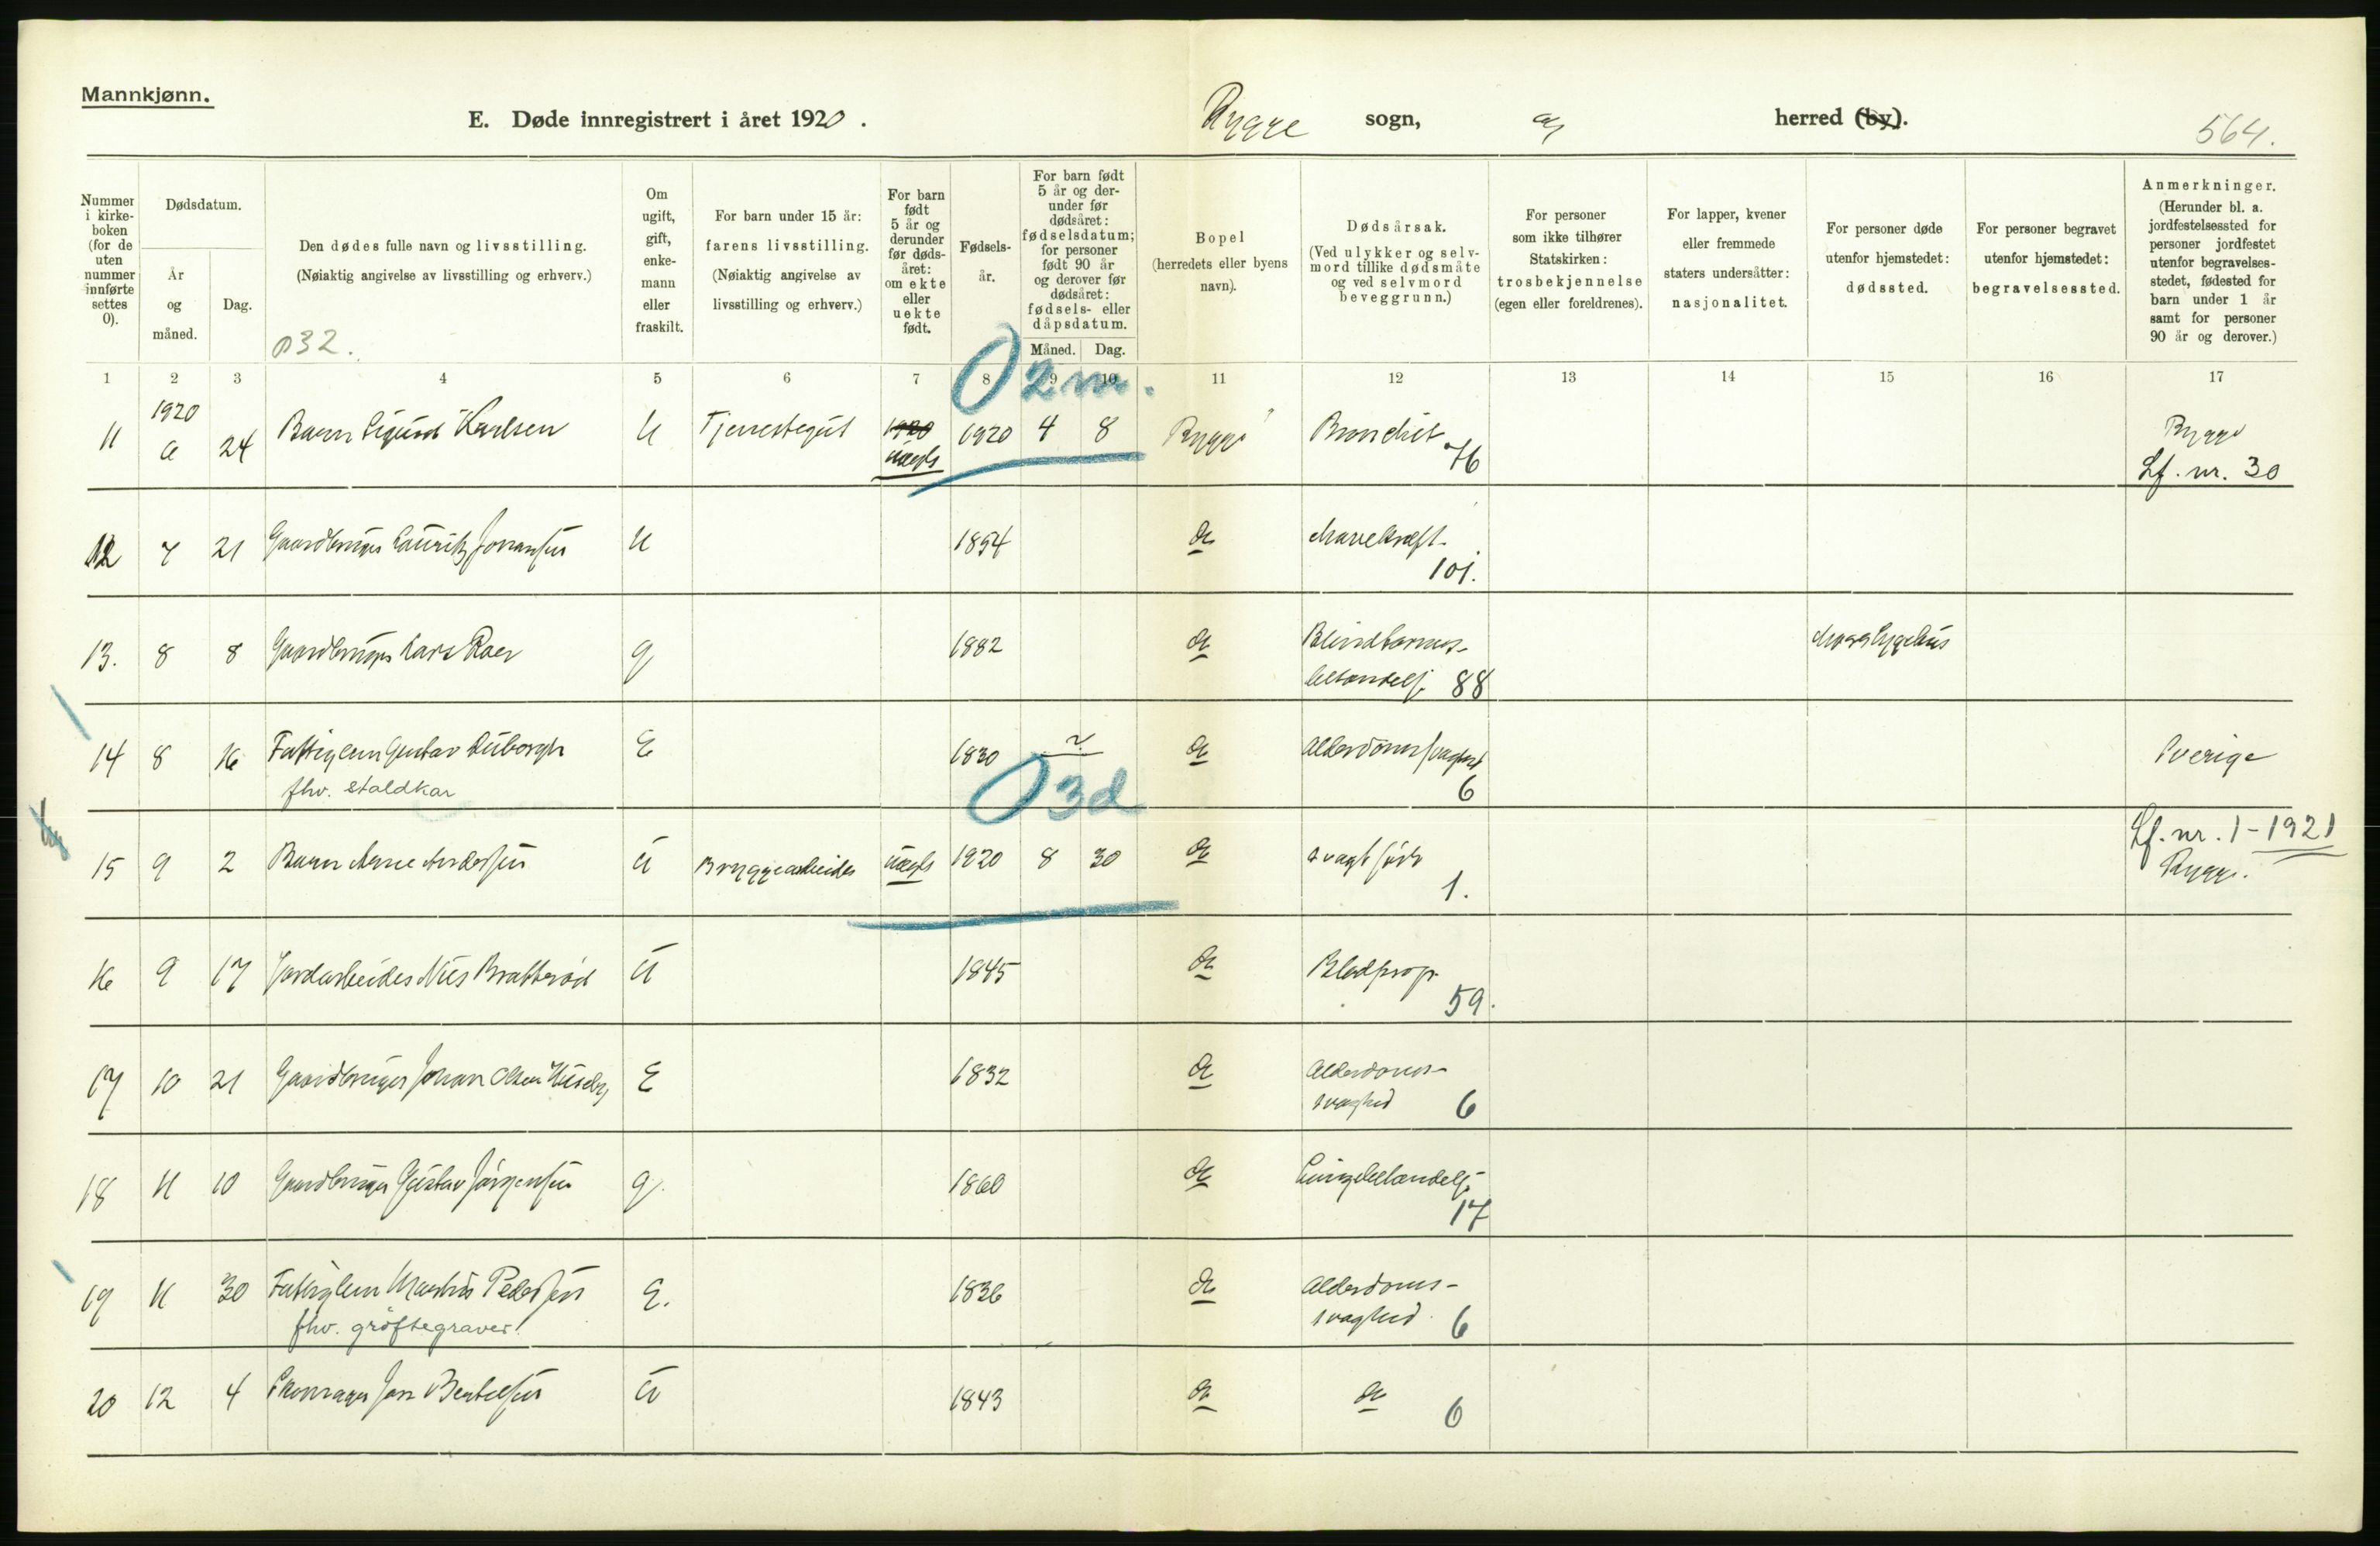 Mannkjønn.
E. Døde innregistrert i året 1920.
Rygge sogn, og herred (by).
564.
Nummer i kirkeboken (for de uten nummer innførte settes 0).
Dødsdatum.
År og måned.
Dag.
Den dødes fulle navn og livsstilling.
(Nøiaktig angivelse av livsstilling og erhverv.)
032.
Om ugift, gift, enkemann eller fraskilt.
For barn under 15 år: farens livsstilling.
(Nøiaktig angivelse av livsstilling og erhverv.)
For barn født 5 år og derunder før dødsåret: om ekte eller uekte født.
Fødselsår.
For barn født 5 år og derunder før dødsåret: fødselsdatum; for personer født 90 år og derover før dødsåret: fødsels- eller dåpsdatum.
Måned. Dag.
Bopel (herredets eller byens navn).
Dødsårsak.
(Ved ulykker og selvmord tillike dødsmåte og ved selvmord beveggrunn.)
For personer som ikke tilhører Statskirken: trosbekjennelse (egen eller foreldrenes).
For lapper, kvener eller fremmede staters undersåtter: nasjonalitet.
For personer døde utenfor hjemstedet: dødssted.
For personer begravet utenfor hjemstedet: begravelsessted.
Anmerkninger.
(Herunder bl. a. jordfestelsessted for personer jordfestet utenfor begravelsesstedet, fødested for barn under 1 år samt for personer 90 år og derover.)
1 2 3 4 5 6 7 8 9 10 11 12 13 14 15 16 17
0 2 m.
1920
11 6 24 Barn Sigurd Karlsen U Tjenestegut 1920 uægte 1920 4 8 Rygge Bronchit 76 Rygge
Lf. nr. 30
12 7 21 Gaardbruger Lauritz Johansen U 1854 do Mavekræft 101.
13. 8 8 Gaardbruger Lars Roer g 1882 do Blindtarms-
betændels. 88 Moss sygehus
14 8 16 Fattiglem Gustav Duborgh E 1830 do Alderdomssvaghed 6 Sverige
fhv. staldkar
0 3 d
Lf. nr. 1 - 1921
15 9 2 Barn Arne Andersen U Bryggearbeider uægte 1920 8 30 do svagt født 1. Rygge.
16 9 17 Jordarbeider Nils Bratterød U 1845 do Blodprop 59.
17 10 21 Gaardbruger Johan Olsen Huseby E 1832 do Alderdoms-
svaghed 6
18 11 10 Gaardbruger Gustav Jørgensen g. 1860 do Lungebetændels. 17
19 11 30 Fattiglem Martin Pedersen E. 1836 do Alderdoms-
svaghed. 6
fhv. grøftegraver.
20 12 4 Skomager Jon Bertelsen U 1843 do do 6